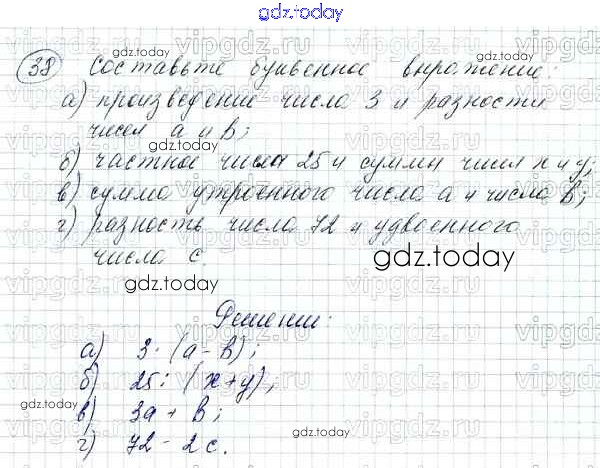 gdz.today
38 Составьте буквенное выражение:
gdz.today
а) произведение числа 3 и разности
чисел a и b;
б) частное числа 25 и суммы чисел x и y;
в) сумма утроенного числа a и числа b;
г) разность числа 72 и удвоенного
числа c.
gdz.today
gdz.today
Решение:
а) 3·(a-b);
б) 25:(x+y);
gdz.today
в) 3a+b;
г) 72-2c.
gdz.today
gdz.today
vipgdz.ru